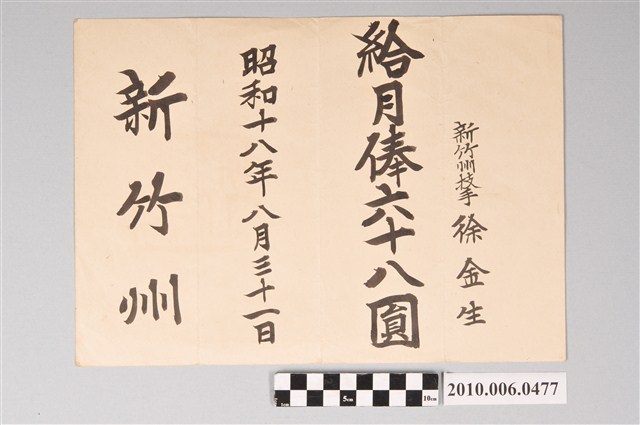 新竹州技手 徐金生
給月俸六十八圓
昭和十八年八月三十一日
新竹州
2010.006.0477
1cm 5cm 10cm